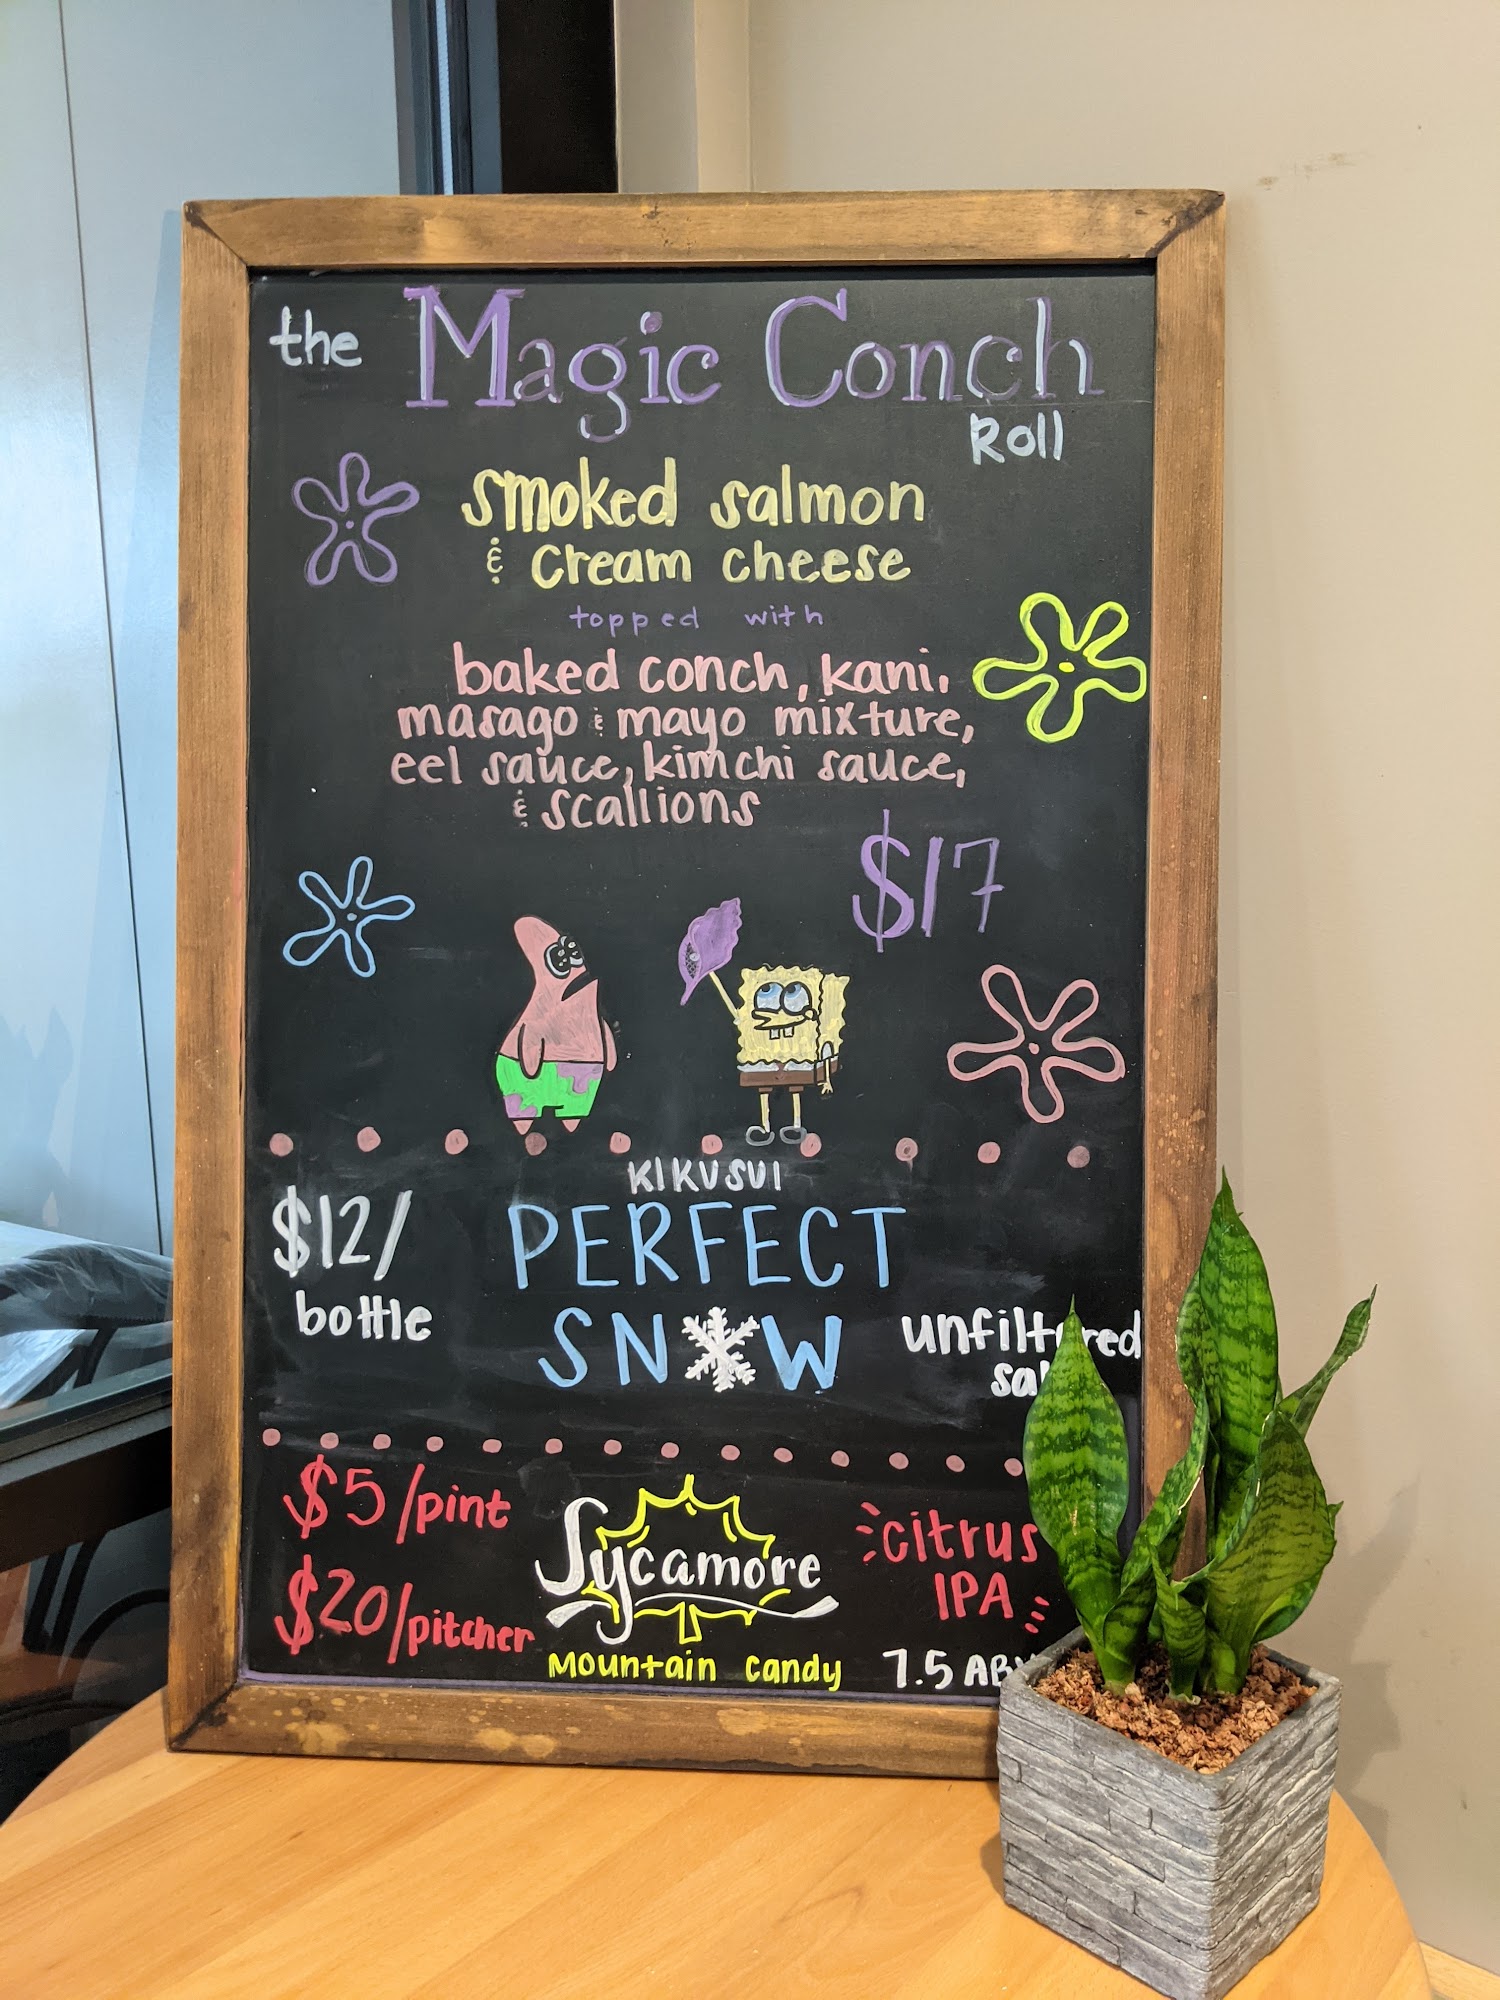 the Magic Conch
Roll
smoked salmon
& cream cheese
topped with
baked conch, kani,
masago & mayo mixture,
eel sauce, kimchi sauce,
& scallions
$17
KIKUSUI
$12/
bottle
PERFECT
SNOW
unfiltered
$5/pint
$20/pitcher
Sycamore
Mountain Candy
citrus
IPA
7.5 ABV